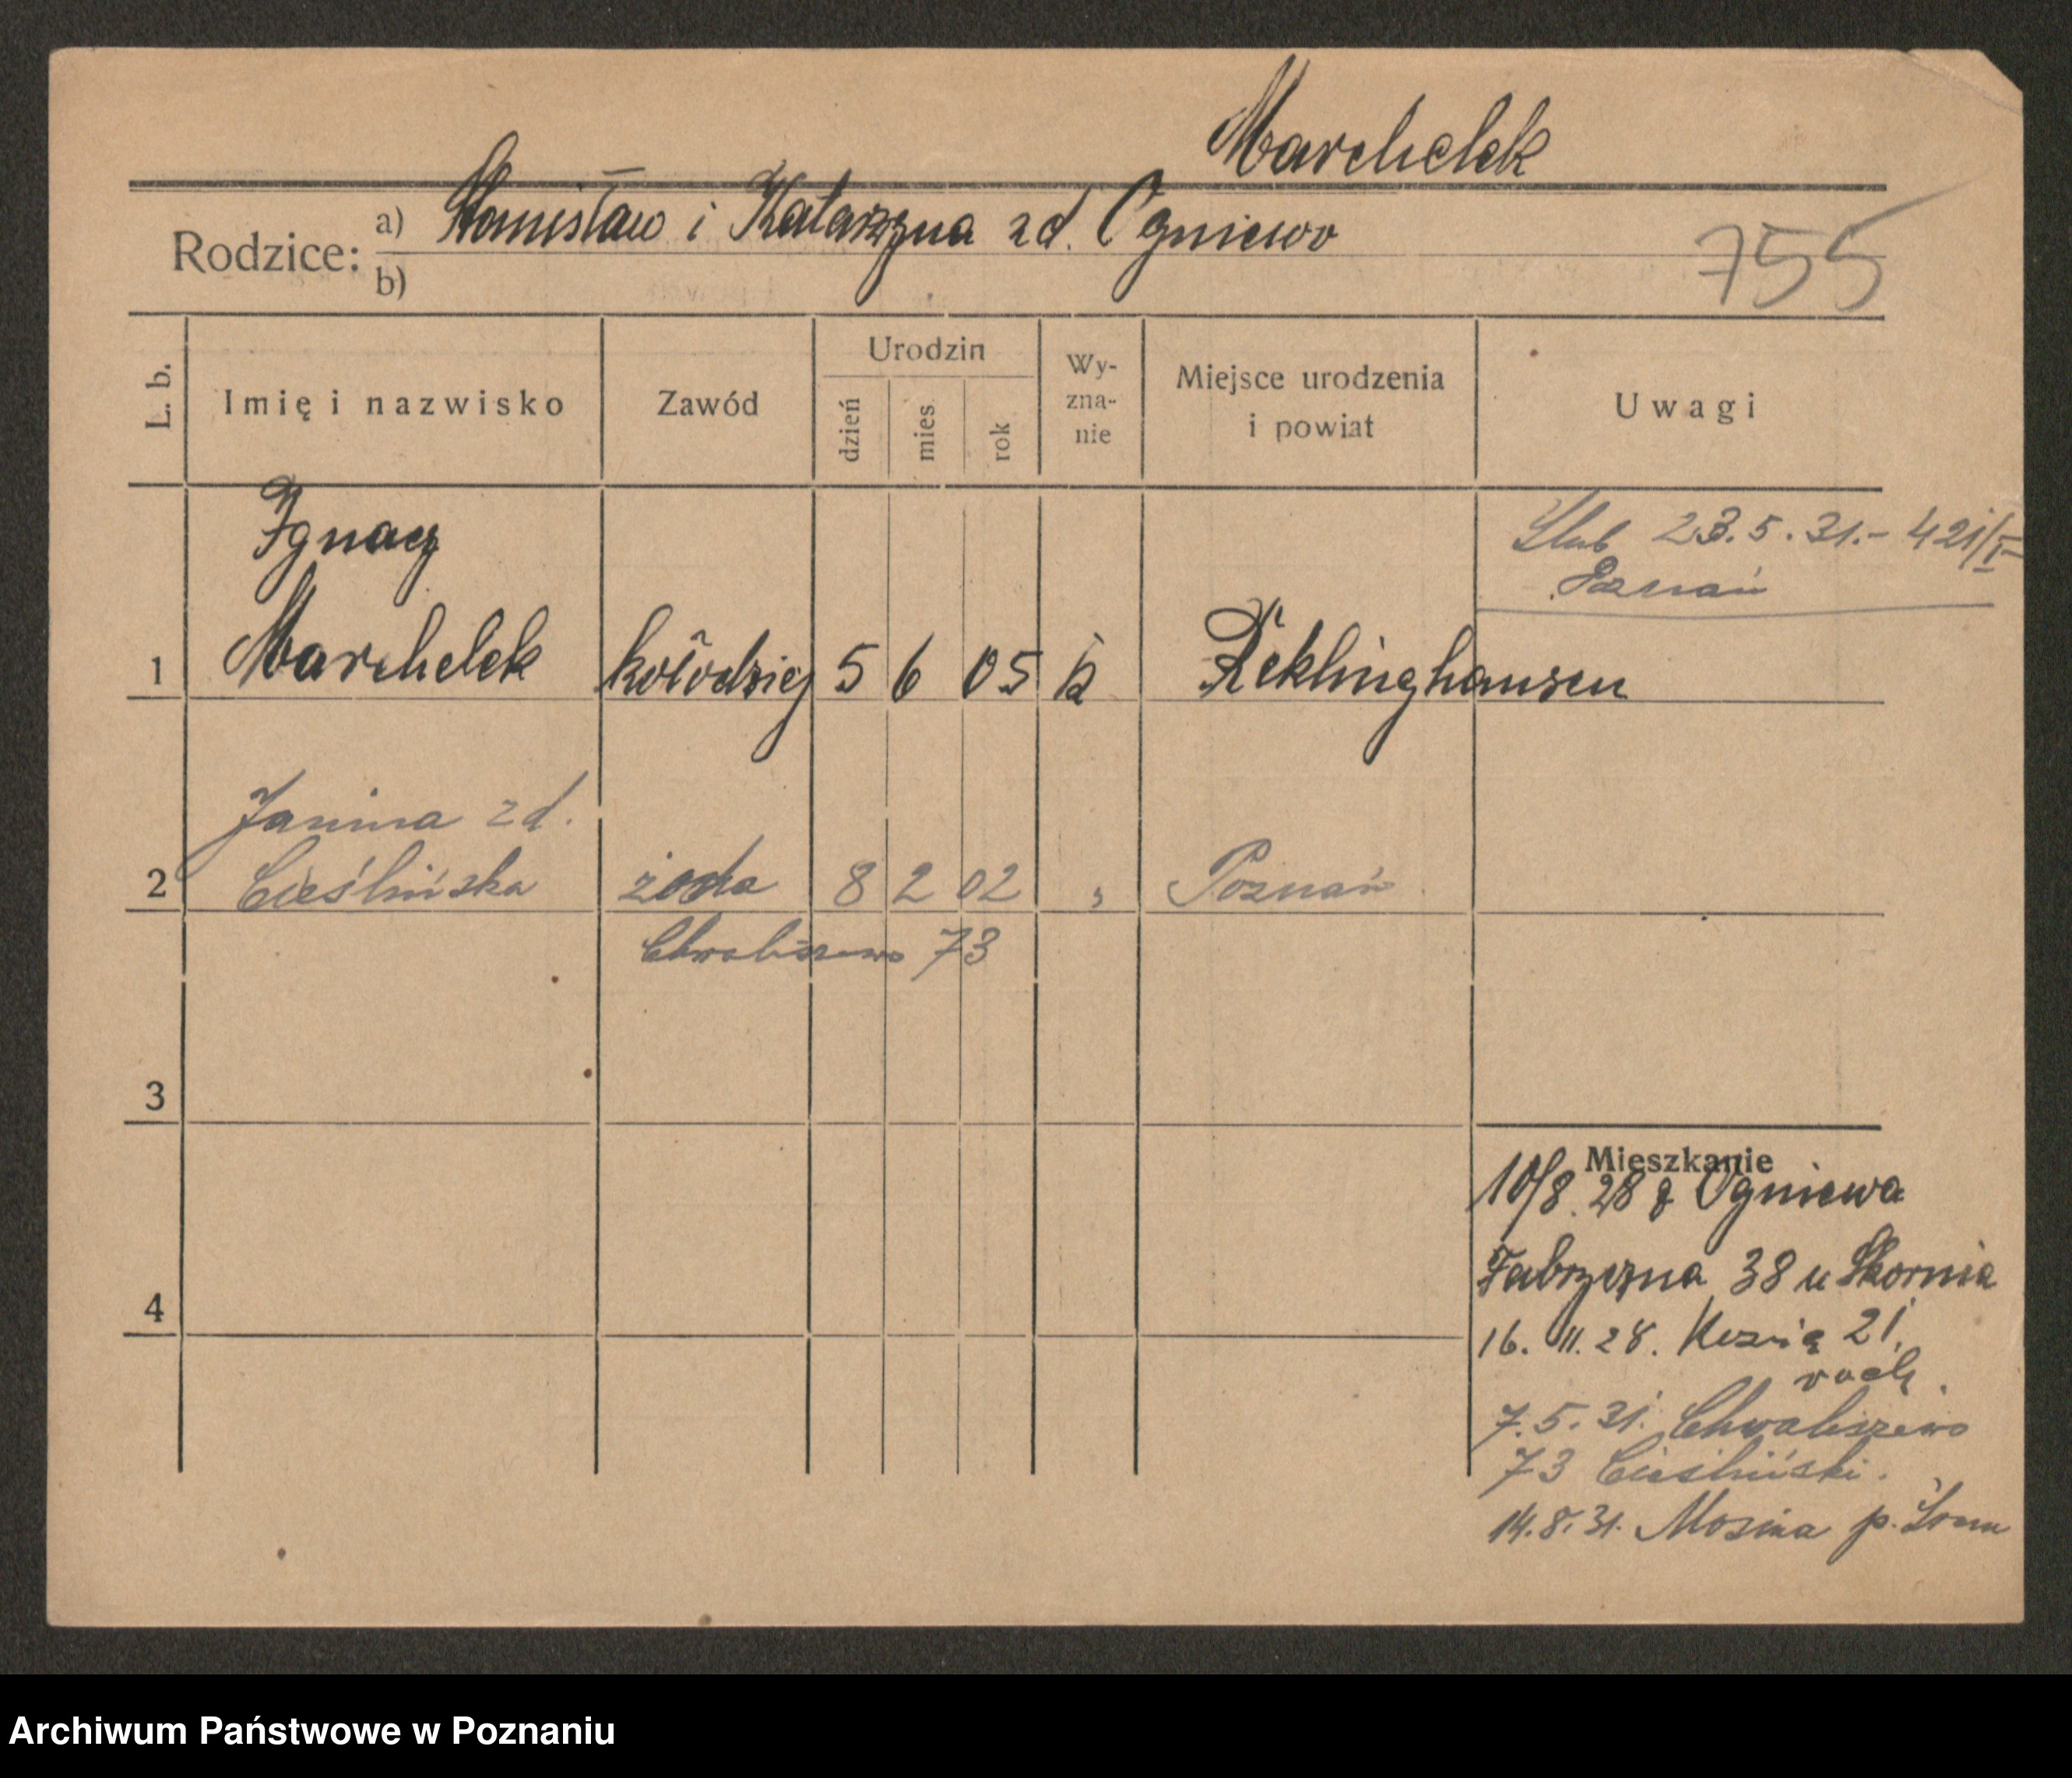 Marchelek
Rodzice: a) Stanisław i Katarzyna zd. Ogniewo
b)
755
L. b.
Imię i nazwisko
Zawód
Urodzin
dzień
mies
rok
Wy-
zna-
nie
Miejsce urodzenia
i powiat
Uwagi
Ślub 23.5.31.- 421/I
Poznań
Ignacy
1 Marchelek kołodziej 5 6 05 k Reklinghausen
Janina zd.
2 Cieślińska 8 2 02 " Poznań
Chwaliszewo 73
3
Mieszkanie
10/8. 28 z Ogniewa
Fabryczna 38 u Skornia
4
16. 11. 28. 21.
7.5.31. Chwaliszewo
73 Cieśliński.
14.8.31. Mosina p. Śrem
Archiwum Państwowe w Poznaniu